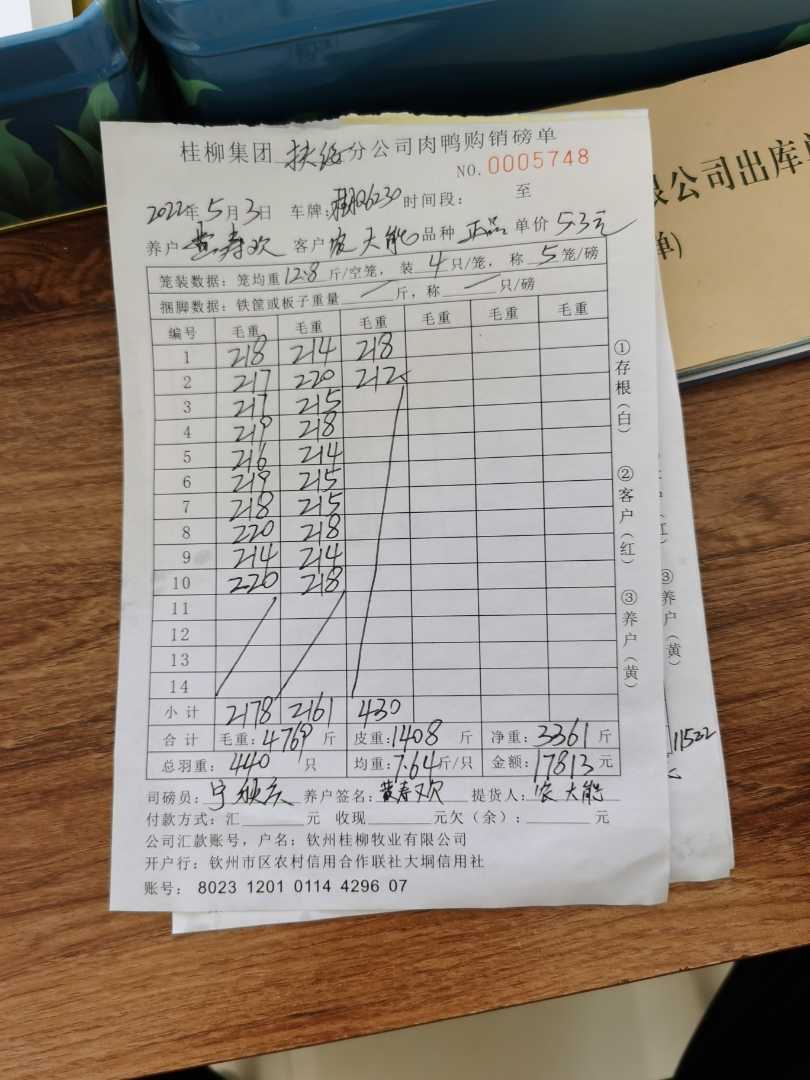 桂柳集团 扶绥 分公司肉鸭购销磅单
NO.0005748
2022年5月3日 车牌: Q6230 时间段: 至
养户 黄寿欢 客户 农大能 品种 正品 单价 5.3元
笼装数据: 笼均重 12.8 斤/空笼, 装 4 只/笼, 称 5 笼/磅
捆脚数据: 铁筐或板子重量 / 斤, 称 / 只/磅
编号 毛重 毛重 毛重 毛重 毛重 毛重
1 218 214 218
2 217 220 212
3 217 215
4 219 218
5 216 214
6 219 215
7 218 215
8 220 218
9 214 214
10 220 218
11
12
13
14
小计 2178 2161 430
合计 毛重: 4769 斤 皮重: 1408 斤 净重: 3361 斤
总羽重: 440 只 均重: 7.64 斤/只 金额: 17813 元
司磅员: 宁 养户签名: 黄寿欢 提货人: 农大能
付款方式: 汇 元 收现 元欠(余): 元
公司汇款账号, 户名: 钦州桂柳牧业有限公司
开户行: 钦州市区农村信用合作联社大垌信用社
账号: 8023 1201 0114 4296 07
①存根(白) ②客户(红) ③养户(黄)
限公司出库
单)
③养户(黄)
11522